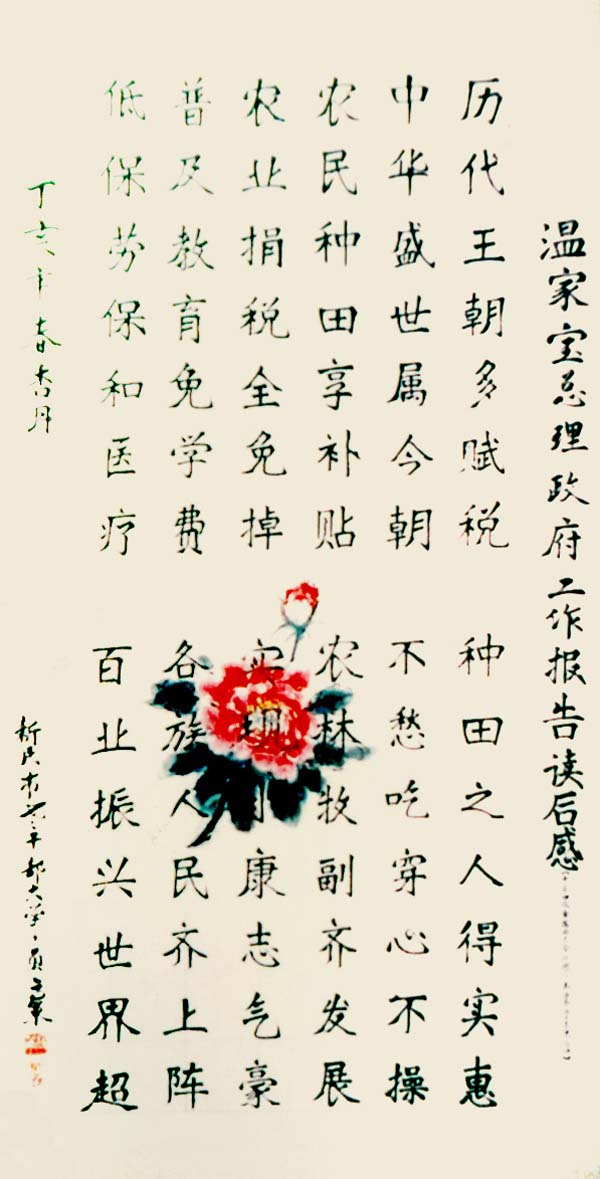 温家宝总理政府工作报告读后感
历代王朝多赋税 种田之人得实惠
中华盛世属今朝 不愁吃穿心不操
农民种田享补贴 农林牧副齐发展
农业捐税全免掉 实现小康志气豪
普及教育免学费 各族人民齐上阵
低保劳保和医疗 百业振兴世界超
丁亥年春杏月
新民市老干部大学学员